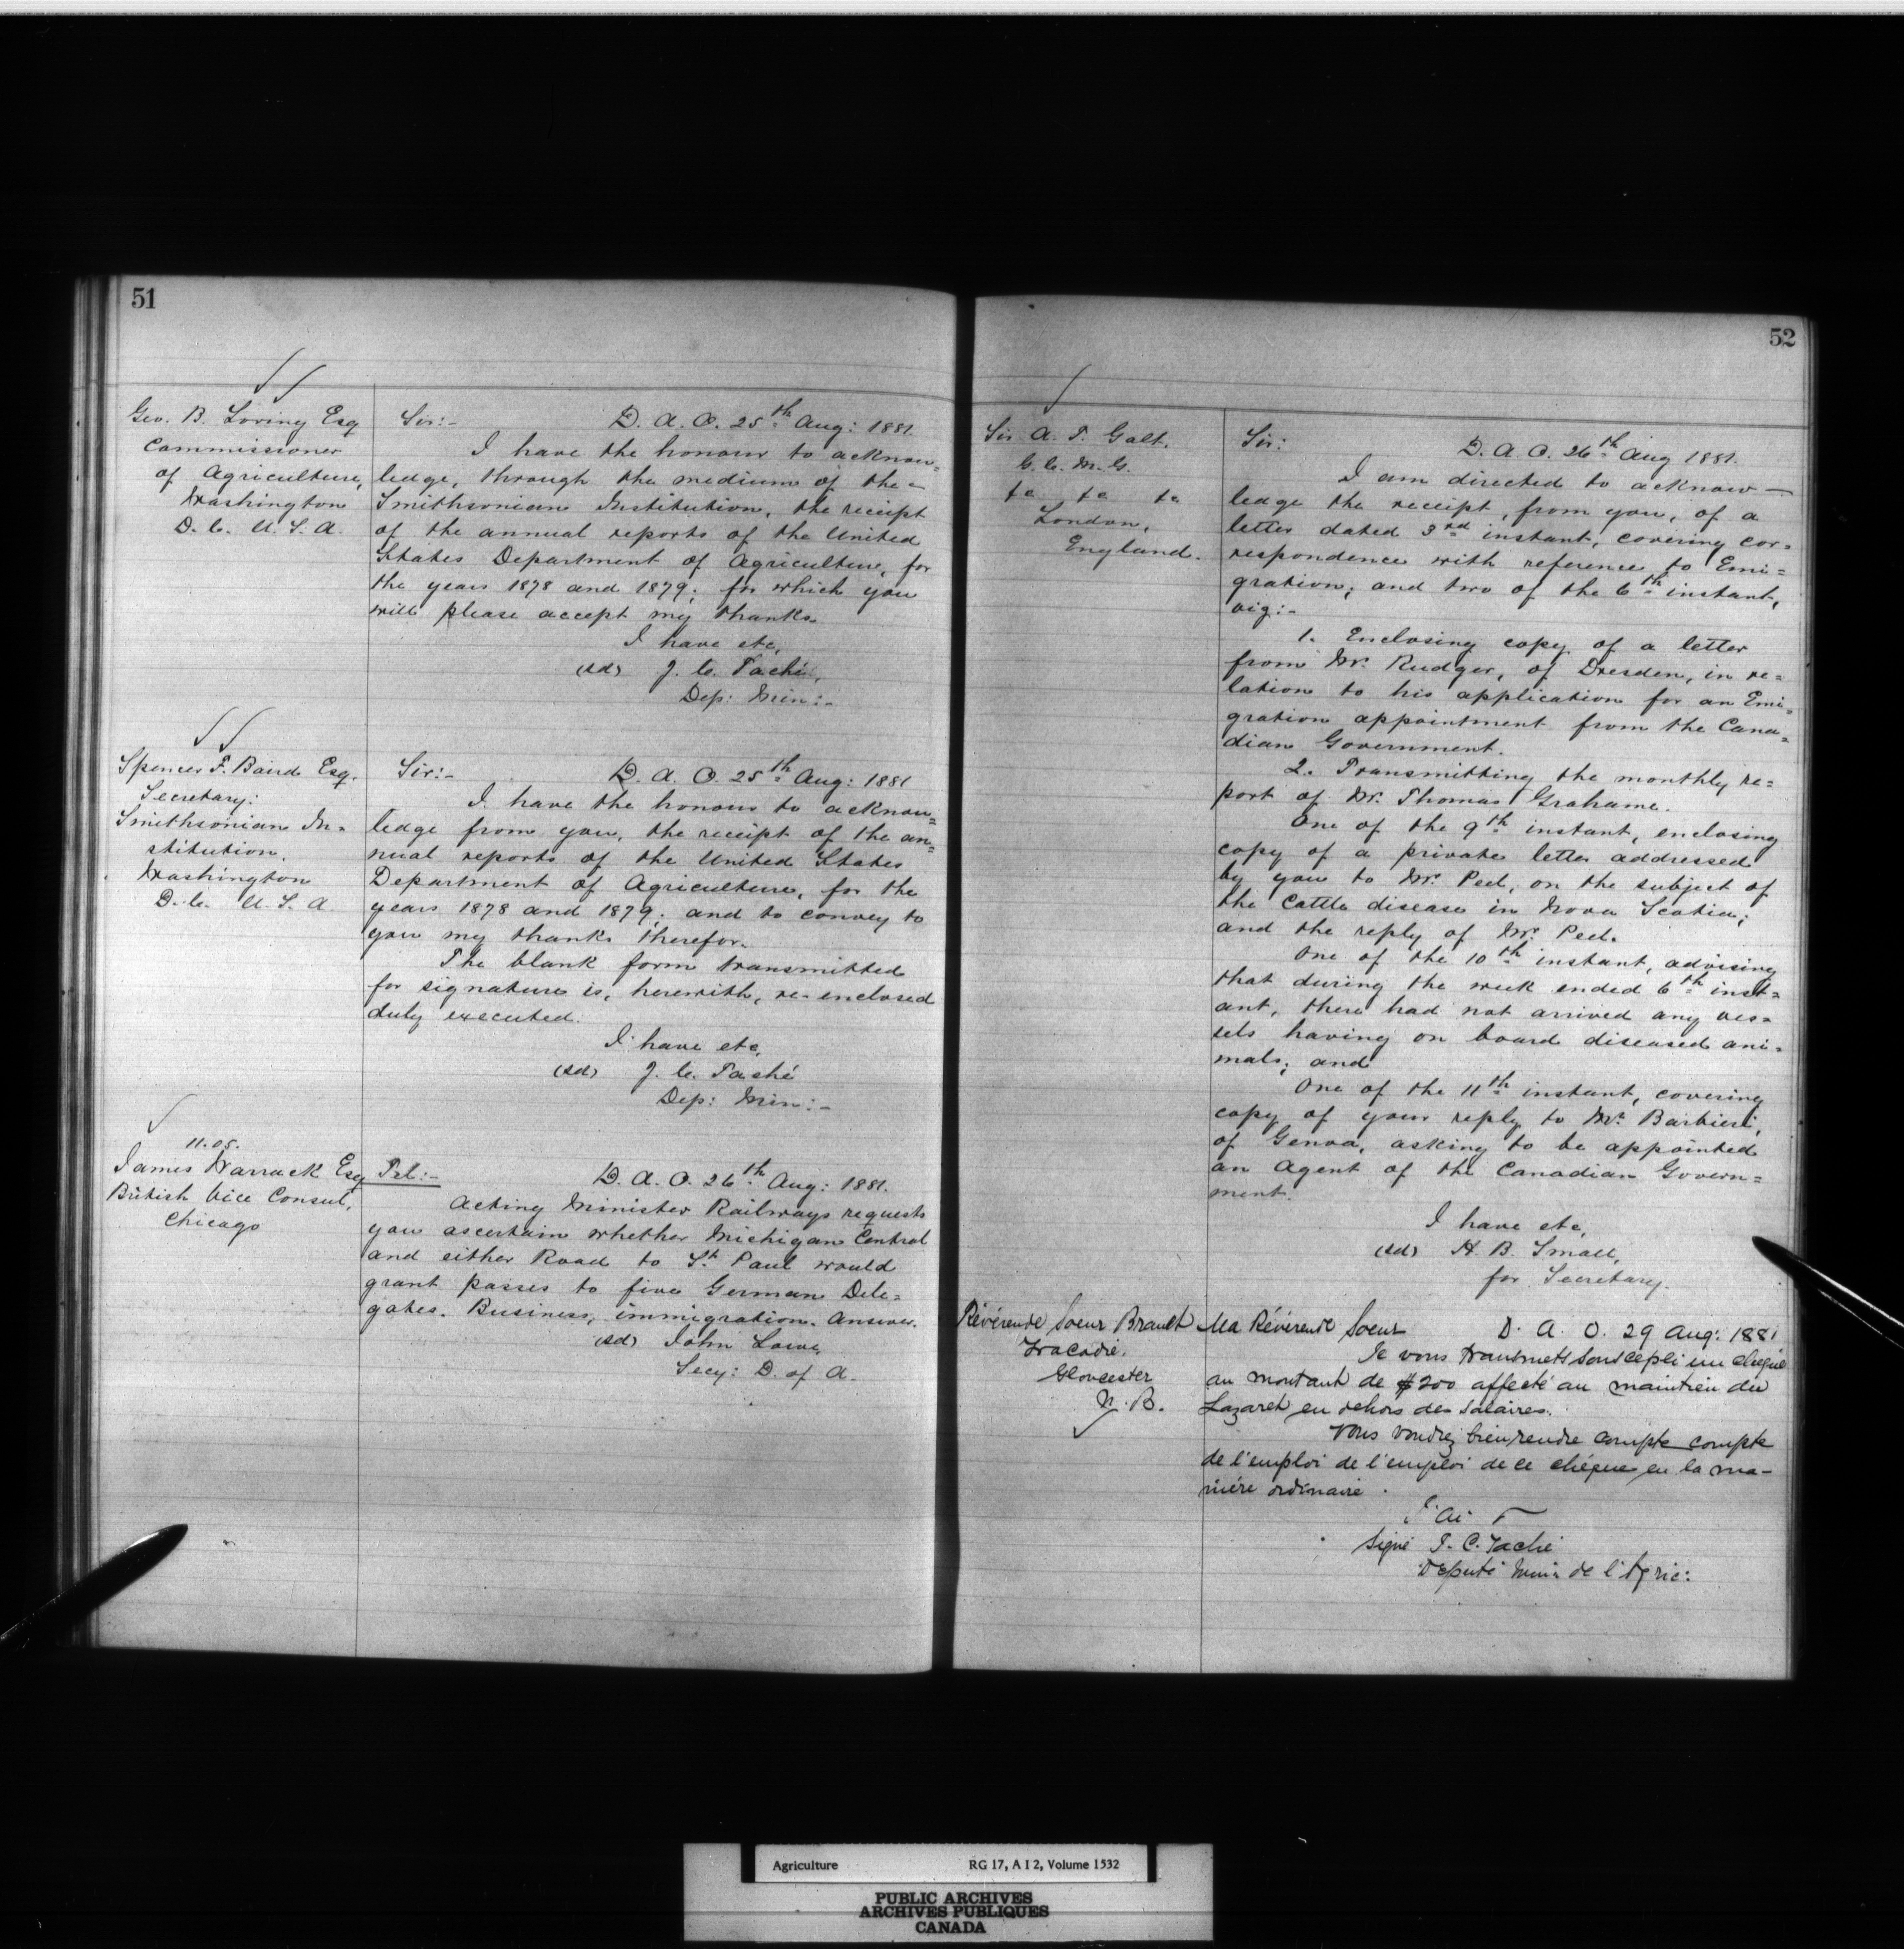 51
Geo. B. Loring Esq
Commissioner
of Agriculture,
Washington
D. C. U. S. A.
Sir:- D. A. O. 25th Aug: 1881.
I have the honour to acknow=
ledge, through the medium of the
Smithsonian Institution, the receipt
of the annual reports of the United
States Department of Agriculture, for
the years 1878 and 1879; for which you
will please accept my thanks.
I have etc,
(sd) J. C. Taché,
Dep: Min:-
Spencer F. Baird Esq.
Secretary:
Smithsonian In-
stitution,
Washington
D. C. U. S. A.
Sir:- D. A. O. 25th Aug: 1881
I have the honour to acknow=
ledge from you, the receipt of the an=
nual reports of the United States
Department of Agriculture, for the
years 1878 and 1879; and to convey to
you my thanks therefor.
The blank form transmitted
for signature is, herewith, re-enclosed
duly executed.
I have etc,
(sd) J. C. Taché
Dep: Min:-
11.05.
James Warrack Esq
British Vice Consul,
Chicago
Tel:- D. A. O. 26th Aug: 1881.
Acting Minister Railways requests
you ascertain whether Michigan Central
and either Road to St Paul would
grant passes to five German Dele=
gates. Business, immigration. Answer.
(sd) John Lowe,
Secy: D. of A.
52
Sir A. T. Galt.
G. C. M. G.
&c &c &c
London,
England.
Sir: D. A. O. 26th Aug 1881.
I am directed to acknow-
ledge the receipt, from you, of a
letter dated 3rd instant, covering cor=
respondence with reference to Emi=
gration; and two of the 6th instant,
viz:-
1. Enclosing copy of a letter
from Mr. Rudger, of Dresden, in re=
lation to his application for an Emi=
gration appointment from the Cana=
dian Government.
2. Transmitting the monthly re=
port of Mr. Thomas Grahame.
One of the 9th instant, enclosing
copy of a private letter addressed
by you to Mr. Peel, on the subject of
the Cattle disease in Nova Scotia;
and the reply of Mr. Peel.
One of the 10th instant, advising
that during the week ended 6th inst=
ant, there had not arrived any ves=
sels having on board diseased ani=
mals; and
One of the 11th instant, covering
copy of your reply to Mr. Barbieri,
of Genoa, asking to be appointed
an Agent of the Canadian Govern=
ment.
I have etc,
(sd) H. B. Small,
for Secretary.
Révérende Soeur Brault
Tracadie.
Gloucester
N. B.
Ma Révérende Soeur D. A. O. 29 Aug: 1881
Je vous transmets sous ce pli un chèque
au montant de $200 affecté au maintien du
Lazaret en dehors des salaires.
Vous voudrez bien rendre compte compte
de l'emploi de l'emploi de ce chèque en la ma-
nière ordinaire.
J'ai
Signé J. C. Taché
Député Min: de l'Agric:
Agriculture RG 17, A I 2, Volume 1532
PUBLIC ARCHIVES
ARCHIVES PUBLIQUES
CANADA